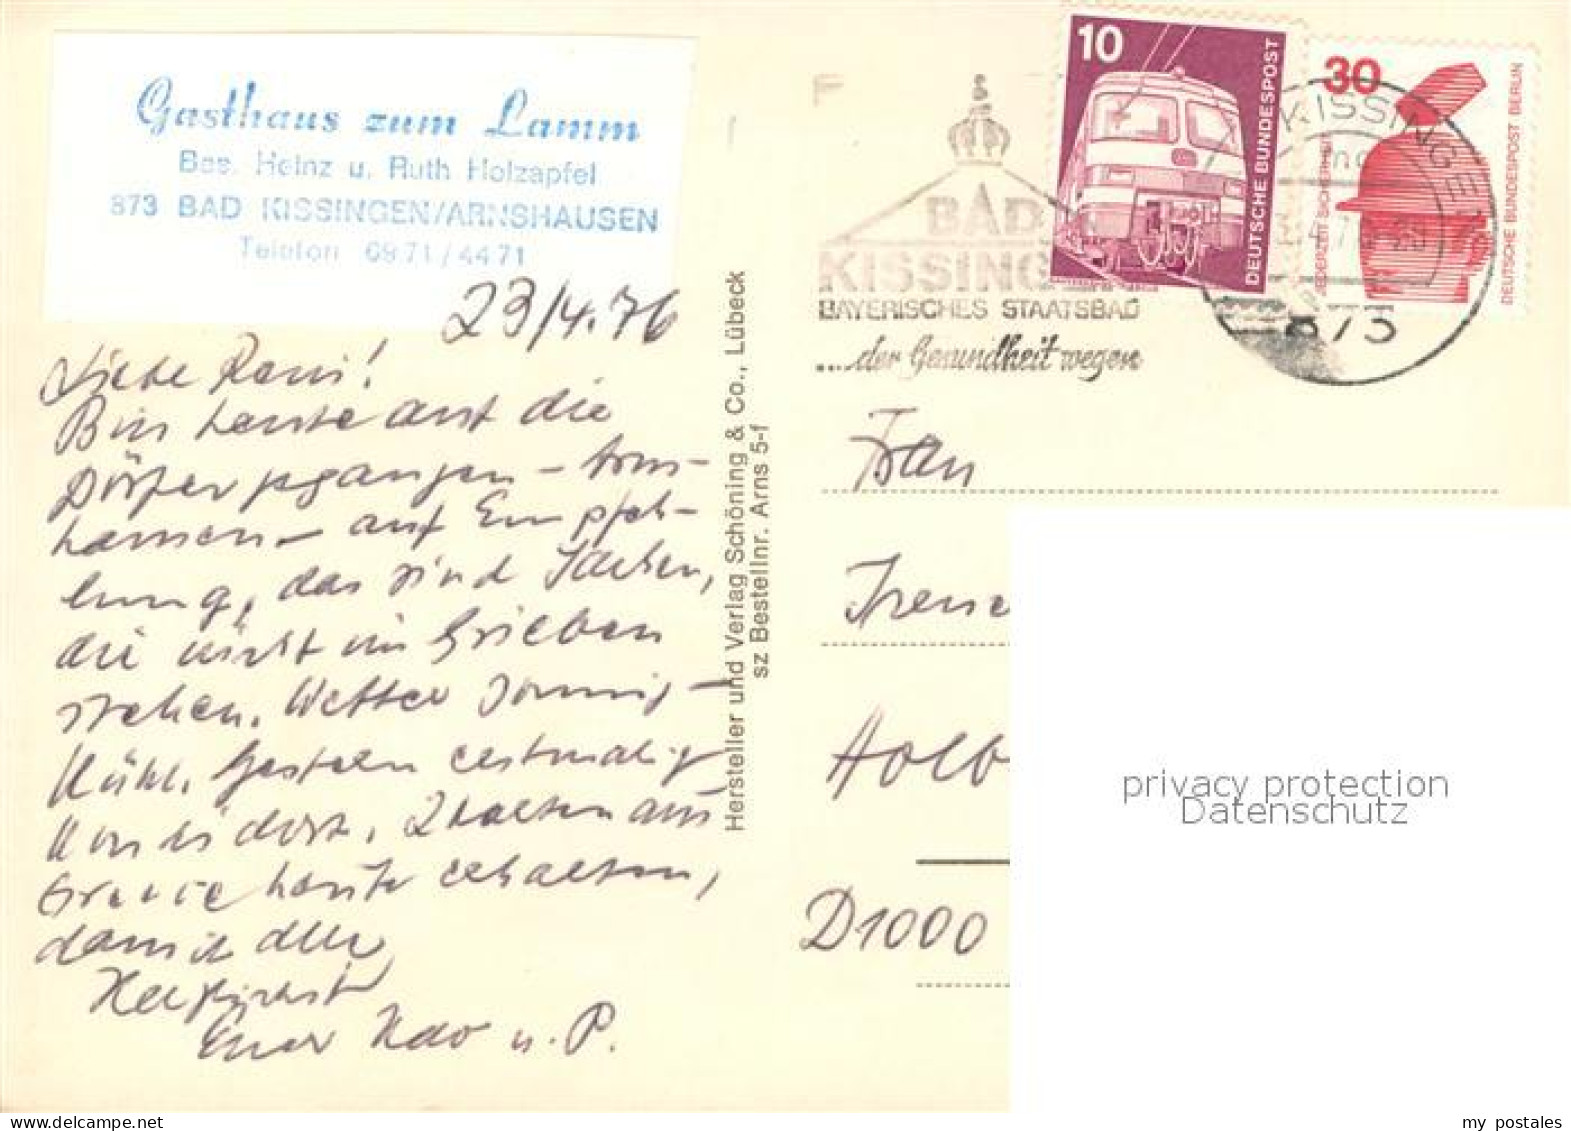 Gasthaus zum Lamm
Bes. Heinz u. Ruth Holzapfel
873 BAD KISSINGEN/ARNSHAUSEN
Telefon 0971/4471
23/4.76
Liebe
Bin heute auf die
Dörfer gegangen – Arns-
hausen – auf Empfeh-
lung, das sind Sachen,
die nicht im
stehen. Wetter sonnig –
Kühl. Gestern erstmalig
heute erhalten,
Herzlichst
Euer u. P.
Hersteller und Verlag Schöning & Co., Lübeck
sz Bestellnr. Arns 5-f
F
BAD
KISSING
BAYERISCHES STAATSBAD
...der Gesundheit wegen
10
DEUTSCHE BUNDESPOST
30
JEDERZEIT SICHERHEIT
DEUTSCHE BUNDESPOST BERLIN
KISSINGEN
873
Frau
Irene
Holb
D1000
privacy protection
Datenschutz
my postales